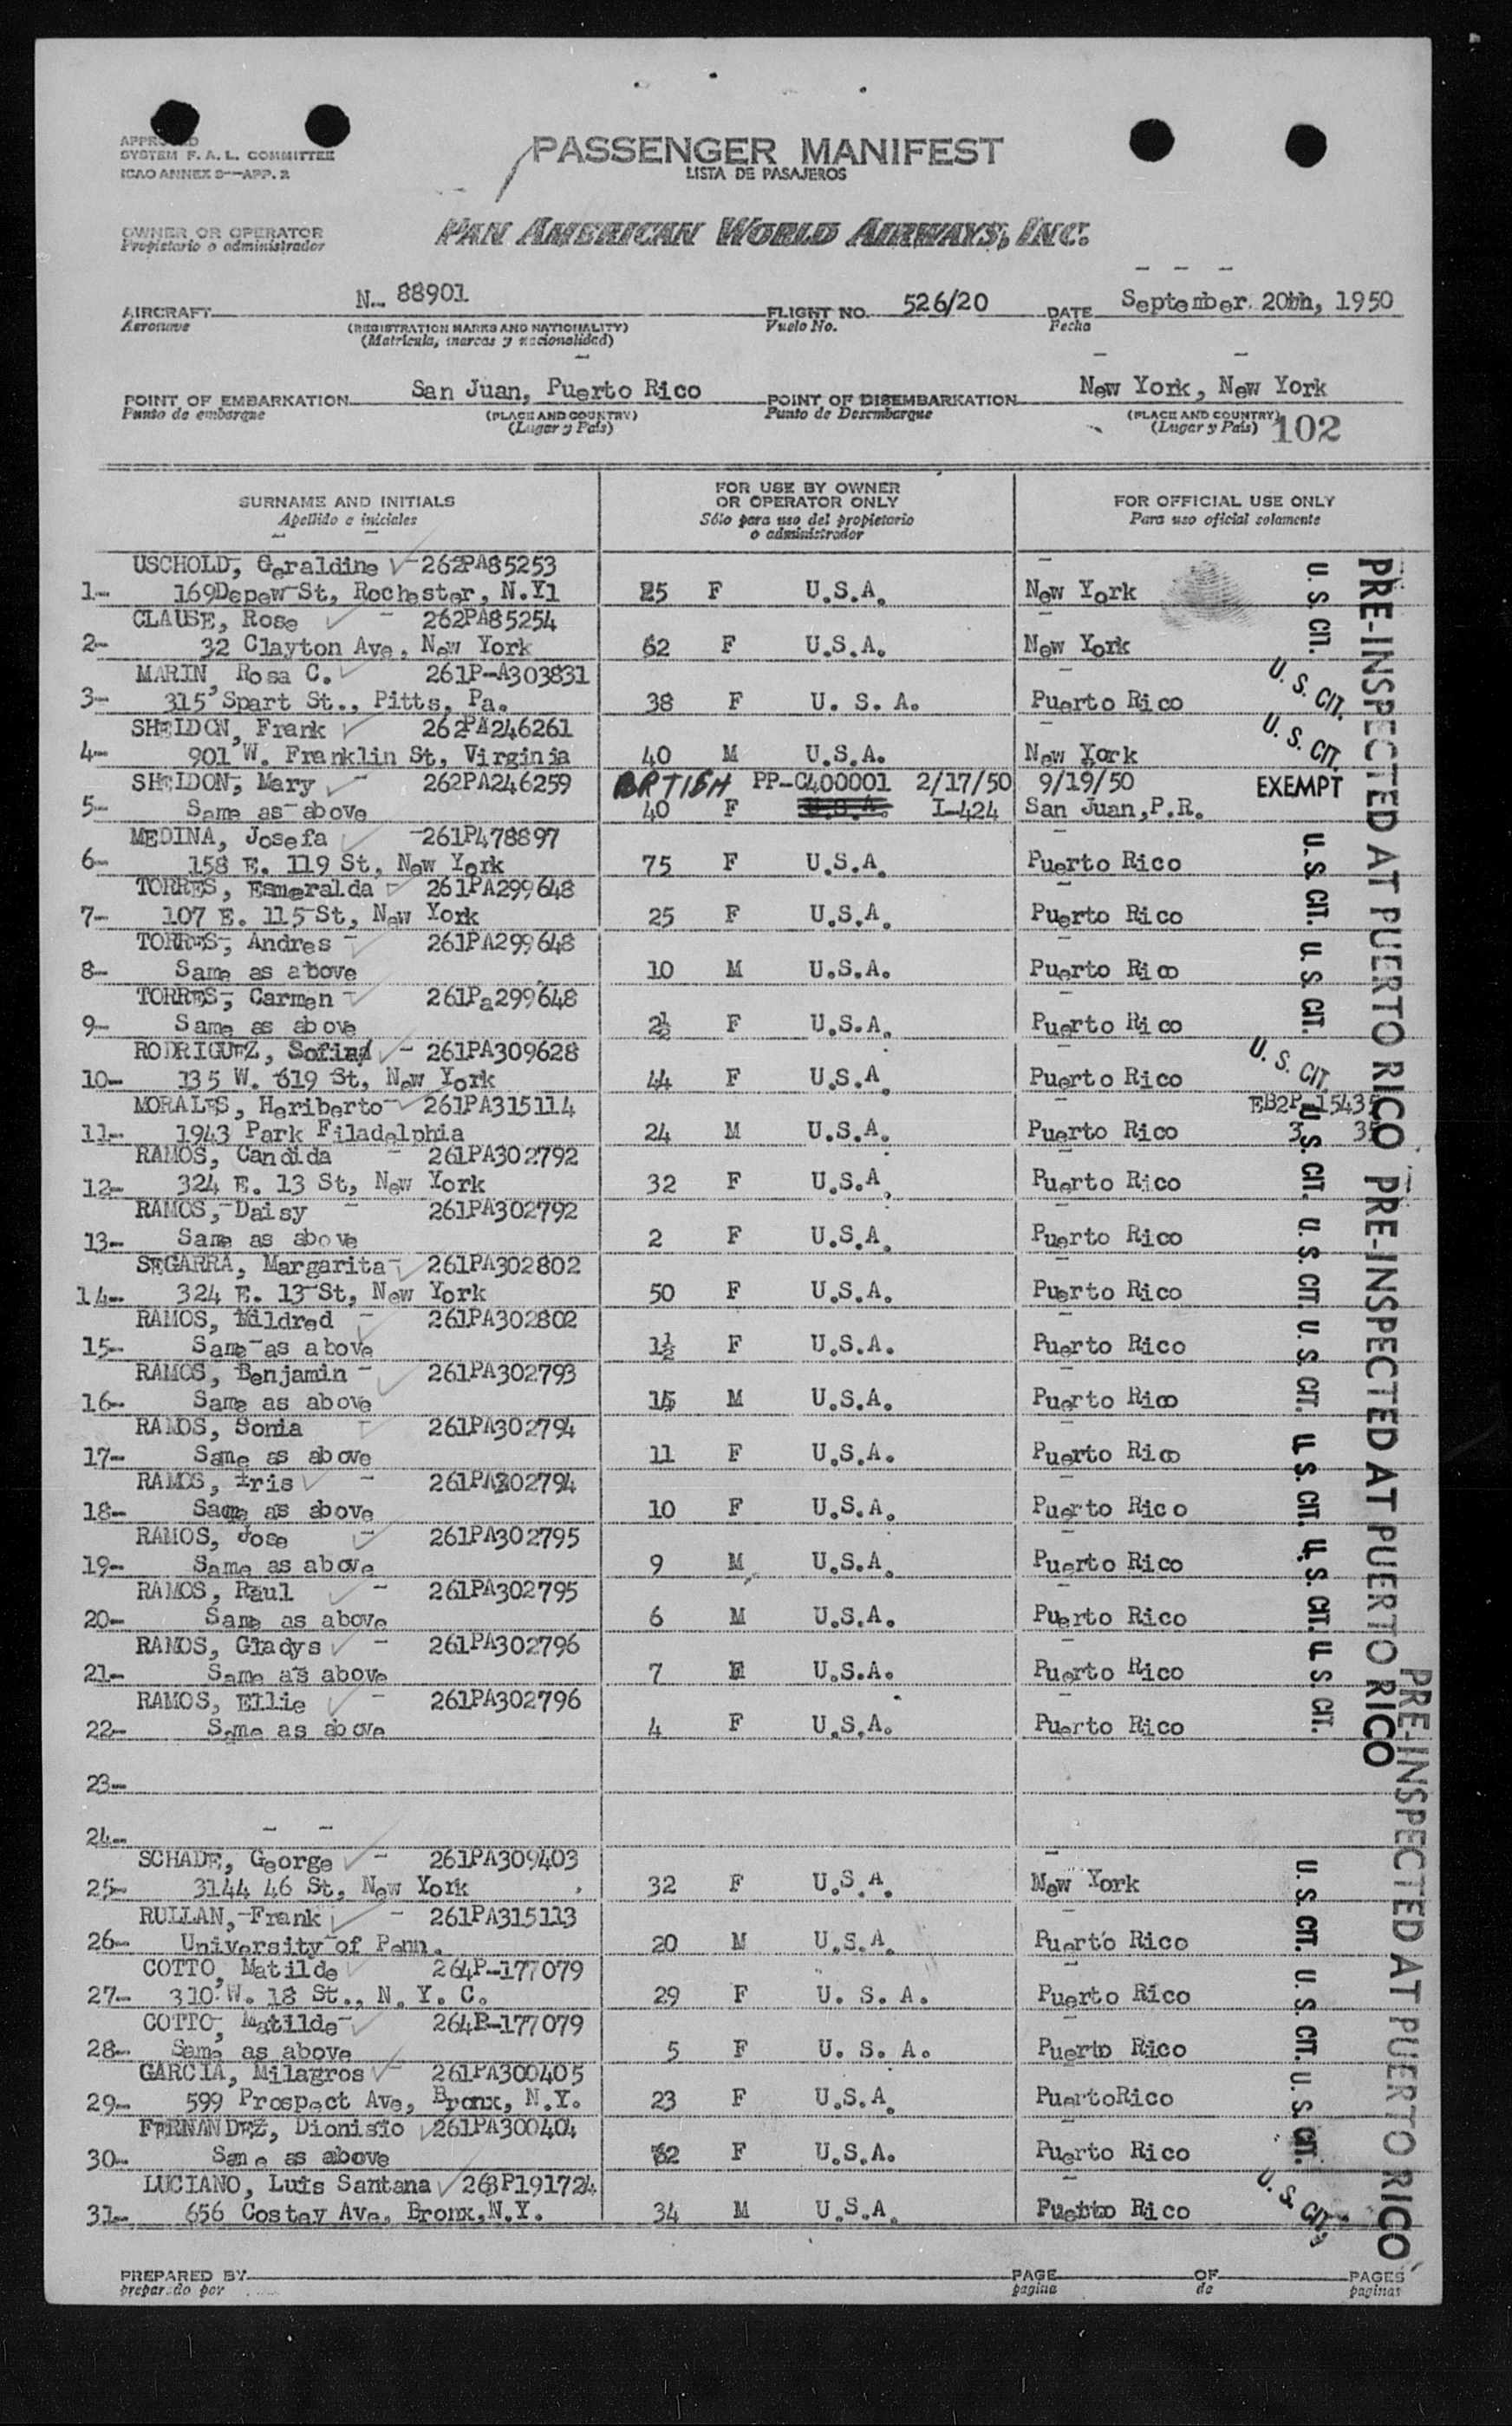 APPROVED
SYSTEM F. A. L. COMMITTEE
ICAO ANNEX 9—APP. 2
PASSENGER MANIFEST
LISTA DE PASAJEROS
OWNER OR OPERATOR
Propietario o administrador
PAN AMERICAN WORLD AIRWAYS, INC.
AIRCRAFT N- 88901 FLIGHT NO. 526/20 DATE September 20th, 1950
Aeronave (REGISTRATION MARKS AND NATIONALITY) Vuelo No. Fecha
(Matricula, marcas y nacionalidad)
POINT OF EMBARKATION San Juan, Puerto Rico POINT OF DISEMBARKATION New York, New York
Punto de embarque (PLACE AND COUNTRY) Punto de Desembarque (PLACE AND COUNTRY)
(Lugar y Pais) (Lugar y Pais) 102
SURNAME AND INITIALS FOR USE BY OWNER OR OPERATOR ONLY FOR OFFICIAL USE ONLY
Apellido e iniciales Sólo para uso del propietario o administrador Para uso oficial solamente
USCHOLD, Geraldine 262PA85253
1- 169Depew St, Rochester, N.Y1 25 F U.S.A. New York U. S. CIT.
CLAUSE, Rose 262PA85254
2- 32 Clayton Ave, New York 62 F U.S.A. New York
MARIN, Rosa C. 261P-A303831
3- 315 Spart St., Pitts, Pa. 38 F U. S. A. Puerto Rico U. S. CIT.
SHEIDON, Frank 262PA246261
4- 901 W. Franklin St, Virginia 40 M U.S.A. New York U. S. CIT.
SHEIDON, Mary 262PA246259 BRTISH PP-C400001 2/17/50 9/19/50 EXEMPT
5- Same as above 40 F U.S.A. I-424 San Juan,P.R.
MEDINA, Josefa 261P478897
6- 158 E. 119 St, New York 75 F U.S.A Puerto Rico U. S. CIT.
TORRES, Esmeralda 261PA299648
7- 107 E. 115 St, New York 25 F U.S.A. Puerto Rico
TORRES, Andres 261PA299648
8- Same as above 10 M U.S.A. Puerto Rico U. S. CIT.
TORRES, Carmen 261Pa299648
9- Same as above 2½ F U.S.A. Puerto Rico
RODRIGUEZ, Sofia 261PA309628
10- 135 W. 619 St, New York 44 F U.S.A Puerto Rico U. S. CIT.
MORALES, Heriberto 261PA315114 EB2P
11- 1943 Park Filadelphia 24 M U.S.A. Puerto Rico U. S. CIT.
RAMOS, Candida 261PA302792
12- 324 E. 13 St, New York 32 F U.S.A. Puerto Rico
RAMOS, Daisy 261PA302792
13- Same as above 2 F U.S.A. Puerto Rico U. S. CIT.
SEGARRA, Margarita 261PA302802
14- 324 E. 13 St, New York 50 F U.S.A. Puerto Rico
RAMOS, Mildred 261PA302802
15- Same as above 1½ F U.S.A. Puerto Rico U. S. CIT.
RAMOS, Benjamin 261PA302793
16- Same as above 14 M U.S.A. Puerto Rico
RAMOS, Sonia 261PA302794
17- Same as above 11 F U.S.A. Puerto Rico U. S. CIT.
RAMOS, Iris 261PA302794
18- Same as above 10 F U.S.A. Puerto Rico
RAMOS, Jose 261PA302795
19- Same as above 9 M U.S.A. Puerto Rico U. S. CIT.
RAMOS, Raul 261PA302795
20- Same as above 6 M U.S.A. Puerto Rico
RAMOS, Gladys 261PA302796
21- Same as above 7 F U.S.A. Puerto Rico U. S. CIT.
RAMOS, Ellie 261PA302796
22- Same as above 4 F U.S.A. Puerto Rico
23-
24-
SCHADE, George 261PA309403
25- 3144 46 St, New York 32 F U.S.A. New York U. S. CIT.
RULLAN, Frank 261PA315113
26- University of Penn. 20 M U.S.A. Puerto Rico
COTTO, Matilde 264P-177079
27- 310 W. 18 St., N. Y. C. 29 F U. S. A. Puerto Rico U. S. CIT.
COTTO, Matilde 264P-177079
28- Same as above 5 F U. S. A. Puerto Rico
GARCIA, Milagros 261PA300405
29- 599 Prospect Ave, Bronx, N.Y. 23 F U.S.A. PuertoRico U. S. CIT.
FERNANDEZ, Dionisio 261PA300404
30- Same as above 62 F U.S.A. Puerto Rico
LUCIANO, Luis Santana 263P191724
31- 656 Costay Ave, Bronx,N.Y. 34 M U.S.A. Puebto Rico U. S. CIT.
PRE-INSPECTED AT PUERTO RICO
PRE-INSPECTED AT PUERTO RICO
PRE-INSPECTED AT PUERTO RICO
PREPARED BY PAGE OF PAGES
preparado por pagina de paginas